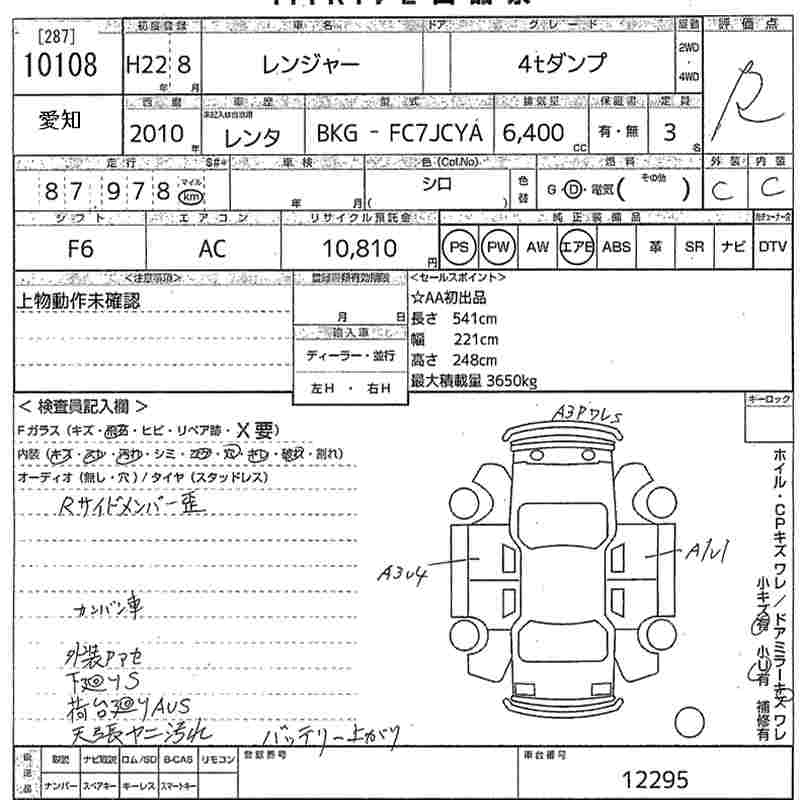 [287]
10108
初度登録 車名 ドア グレード 駆動 評価点
H22 年 8 月 レンジャー 4tダンプ 2WD ・ 4WD R
愛知
西暦 車歴 型式 排気量 保証書 定員
2010 年 レンタ BKG - FC7JCYA 6,400 CC 有・無 3 名
走行 S#* 車検 色(Col.No) 燃料 外装 内装
87,978 マイル km 年 月 シロ ( ) 色替 G・D・電気( その他 ) C C
シフト エアコン リサイクル預託金 純正装備品
F6 AC 10,810 円 PS PW AW エアB ABS 革 SR ナビ DTV
<注意事項> 登録書類有効期限 <セールスポイント>
上物動作未確認
月 日
輸入車
ディーラー・並行
左H ・ 右H
☆AA初出品
長さ 541cm
幅 221cm
高さ 248cm
最大積載量 3650kg
キーロック
< 検査員記入欄 >
Fガラス(キズ・飛石・ヒビ・リペア跡・X要)
内装(キズ・スレ・汚れ・シミ・コゲ・穴・きれ・破れ・割れ)
オーディオ(無し・穴)/タイヤ(スタッドレス)
Rサイドメンバー歪
カンバン車
外装アマセ
下廻りS
荷台廻りAUS
天張ヤニ汚れ
バッテリー上がり
A3PワレS
A3U4
A1U1
ホイル・CPキズ ワレ / ドアミラーキズ ワレ
小キズ有 小U有 補修有
後送品 取説 ナビ取説 ロム/SD B-CAS リモコン
ナンバー スペアキー キーレス スマートキー
登録番号
車台番号
12295